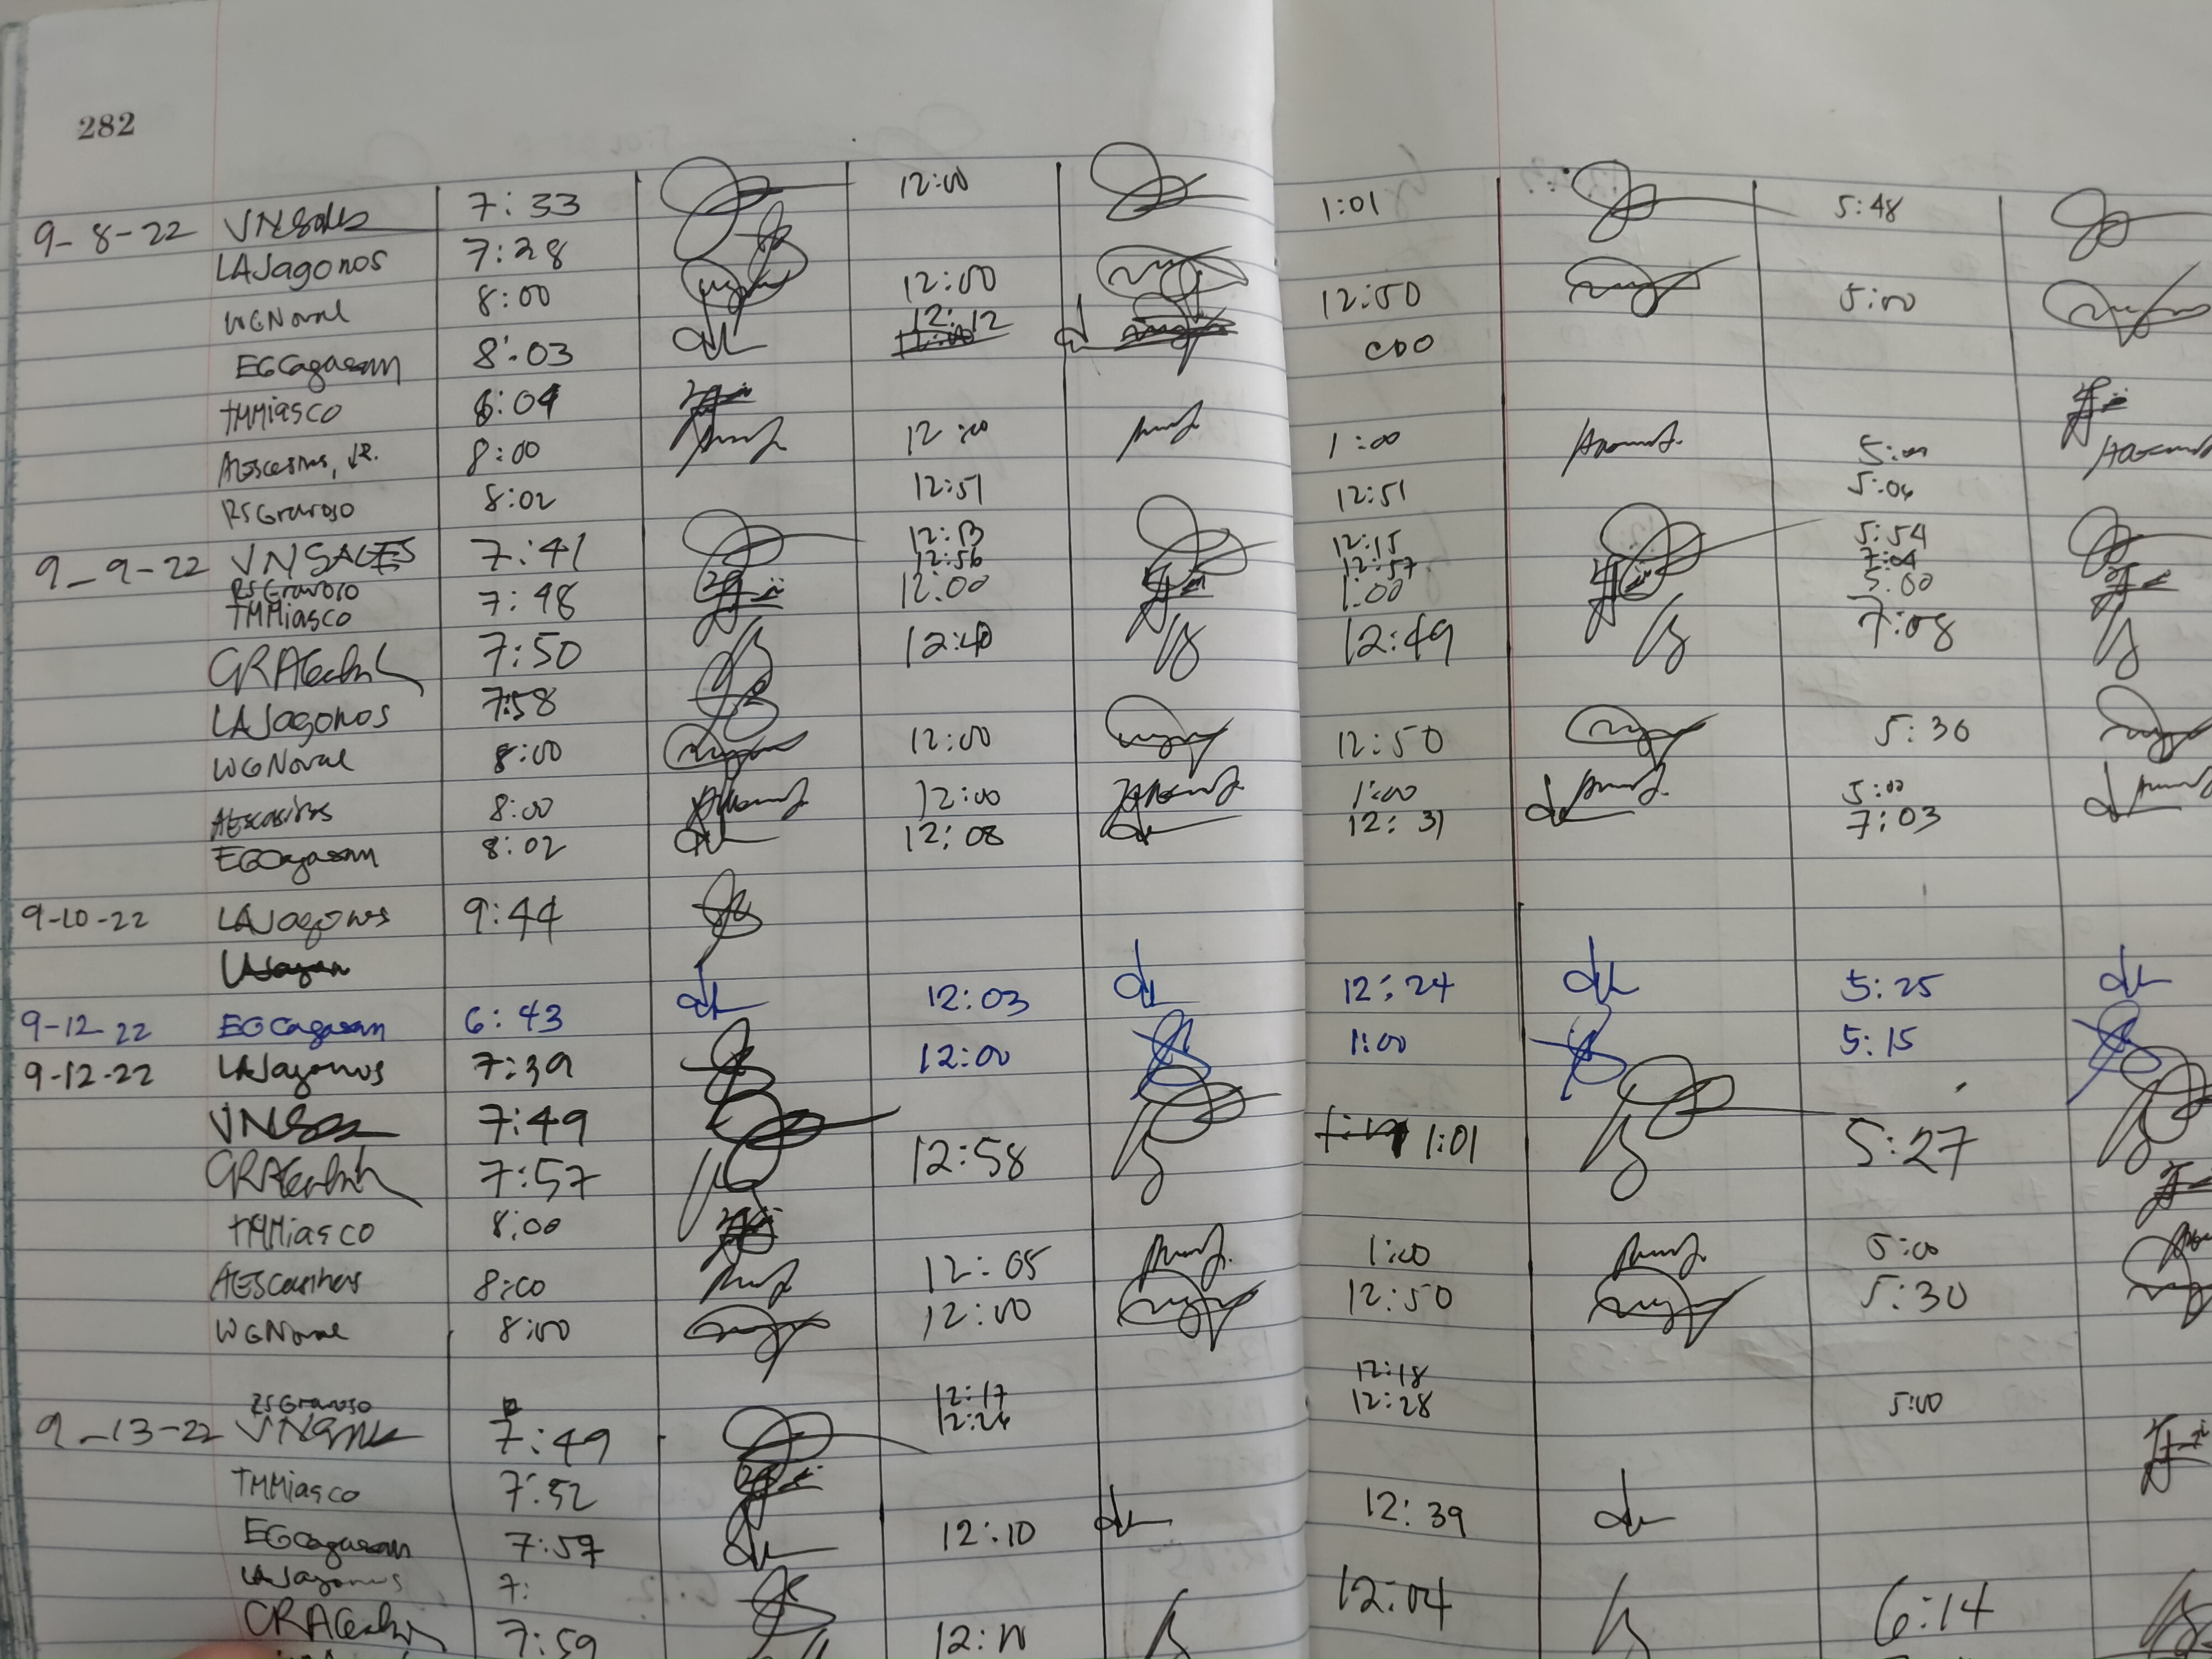 282
9-8-22 VNSales 7:33 12:00 1:01 5:48
LAJagonos 7:28
WGNoval 8:00 12:00 12:50 5:00
EGCagasan 8:03 12:12 CDO
TMMiasco 8:04
AEScasinas, JR. 8:00 12:00 1:00 5:00
RSGravoso 8:02 12:51 12:51 5:06
9-9-22 VNSALES 7:41 12:13 12:15 5:54
RSGravoso 12:56 12:57 7:04
TMMiasco 7:48 12:00 1:00 5:00
7:50 12:40 12:49 7:08
LAJagonos 7:58
WGNoval 8:00 12:00 12:50 5:30
8:00 12:00 1:00 5:00
EGCagasan 8:02 12:08 12:31 7:03
9-10-22 LAJagonos 9:44
9-12-22 EGCagasan 6:43 12:03 12:24 5:25
9-12-22 LAJagonos 7:39 12:00 1:00 5:15
7:49
7:57 12:58 1:01 5:27
TMMiasco 8:00
8:00 12:05 1:00 5:00
WGNoval 8:00 12:00 12:50 5:30
RSGravoso 12:17 12:18
9-13-22 7:49 12:26 12:28 5:00
TMMiasco 7:52
EGCagasan 7:57 12:10 12:39
LAJagonos 7:
7:59 12:04 6:14